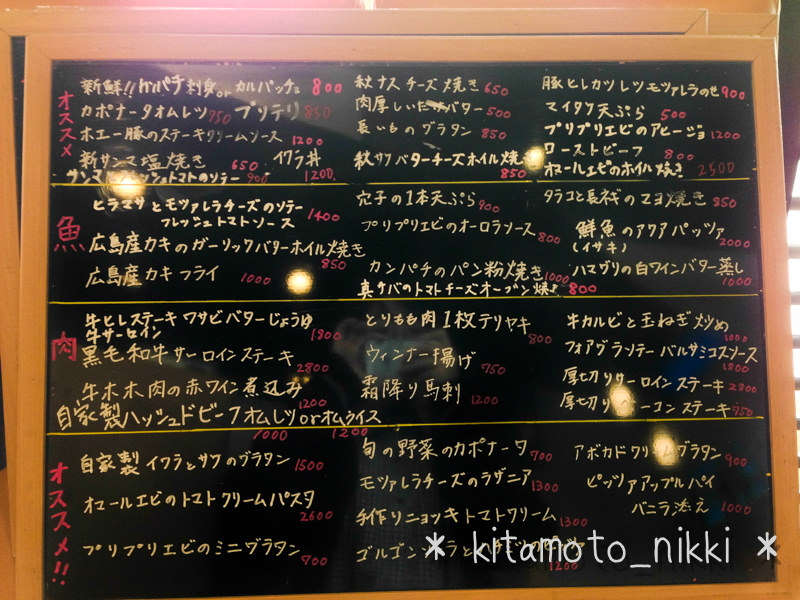 オススメ
新鮮!! カンパチ刺身orカルパッチョ 800
カポナータオムレツ 750 プリテリ 850
ホエー豚のステーキクリームソース 1200
新サンマ塩焼き 650 イクラ丼 1200
サンマとフレッシュトマトのソテー 900
秋ナスチーズ焼き 650
肉厚しいたけバター 500
長いものグラタン 850
秋サケバターチーズホイル焼き 850
豚ヒレカツレツモツァレラのせ 900
マイタケ天ぷら 500
プリプリエビのアヒージョ 1200
ローストビーフ 800
オマールエビのホイル焼き 2500
魚
ヒラマサとモツァレラチーズのソテー
フレッシュトマトソース 1400
広島産カキのガーリックバターホイル焼き 850
広島産カキフライ 1000
穴子の1本天ぷら 900
プリプリエビのオーロラソース 800
カンパチのパン粉焼き 1000
真サバのトマトチーズオーブン焼き 800
タラコと長ネギのマヨ焼き 850
鮮魚のアクアパッツァ
(イサキ) 2000
ハマグリの白ワインバター蒸し 1000
肉
牛ヒレステーキワサビバターじょうゆ
牛サーロイン 1800
黒毛和牛サーロインステーキ 2800
牛ホホ肉の赤ワイン煮込み 1200
自家製ハッシュドビーフオムレツorオムライス
1000 1200
とりもも肉1枚テリヤキ 800
ウィンナー揚げ 750
霜降り馬刺 1200
牛カルビと玉ねぎ炒め 1000
フォアグラソテーバルサミコスソース 1800
厚切りサーロインステーキ 2800
厚切りベーコンステーキ 950
オススメ!!
自家製イクラとサケのグラタン 1500
オマールエビのトマトクリームパスタ 2600
プリプリエビのミニグラタン 700
旬の野菜のカポナータ 700
モツァレラチーズのラザニア 1300
手作りニョッキトマトクリーム 1300
ゴルゴン 1200
アボカドクリームグラタン 900
ピッツァアップルパイ
バニラ添え 1000
* kitamoto_nikki *